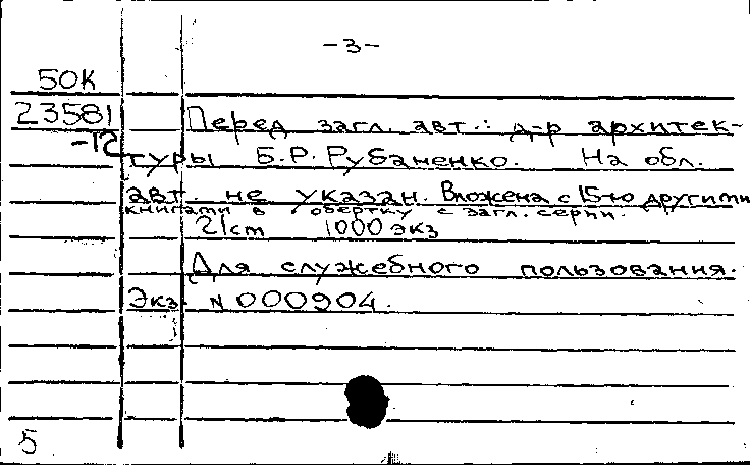 -3-
50К
23581
-12
Перед загл. авт.: д-р архитек-
туры Б.Р. Рубаненко. На обл.
авт. не указан. Вложена с 15-ю другими
книгами в обертку с загл. серии.
21 cm 1000 экз
Для служебного пользования.
Экз. N 000904.
5